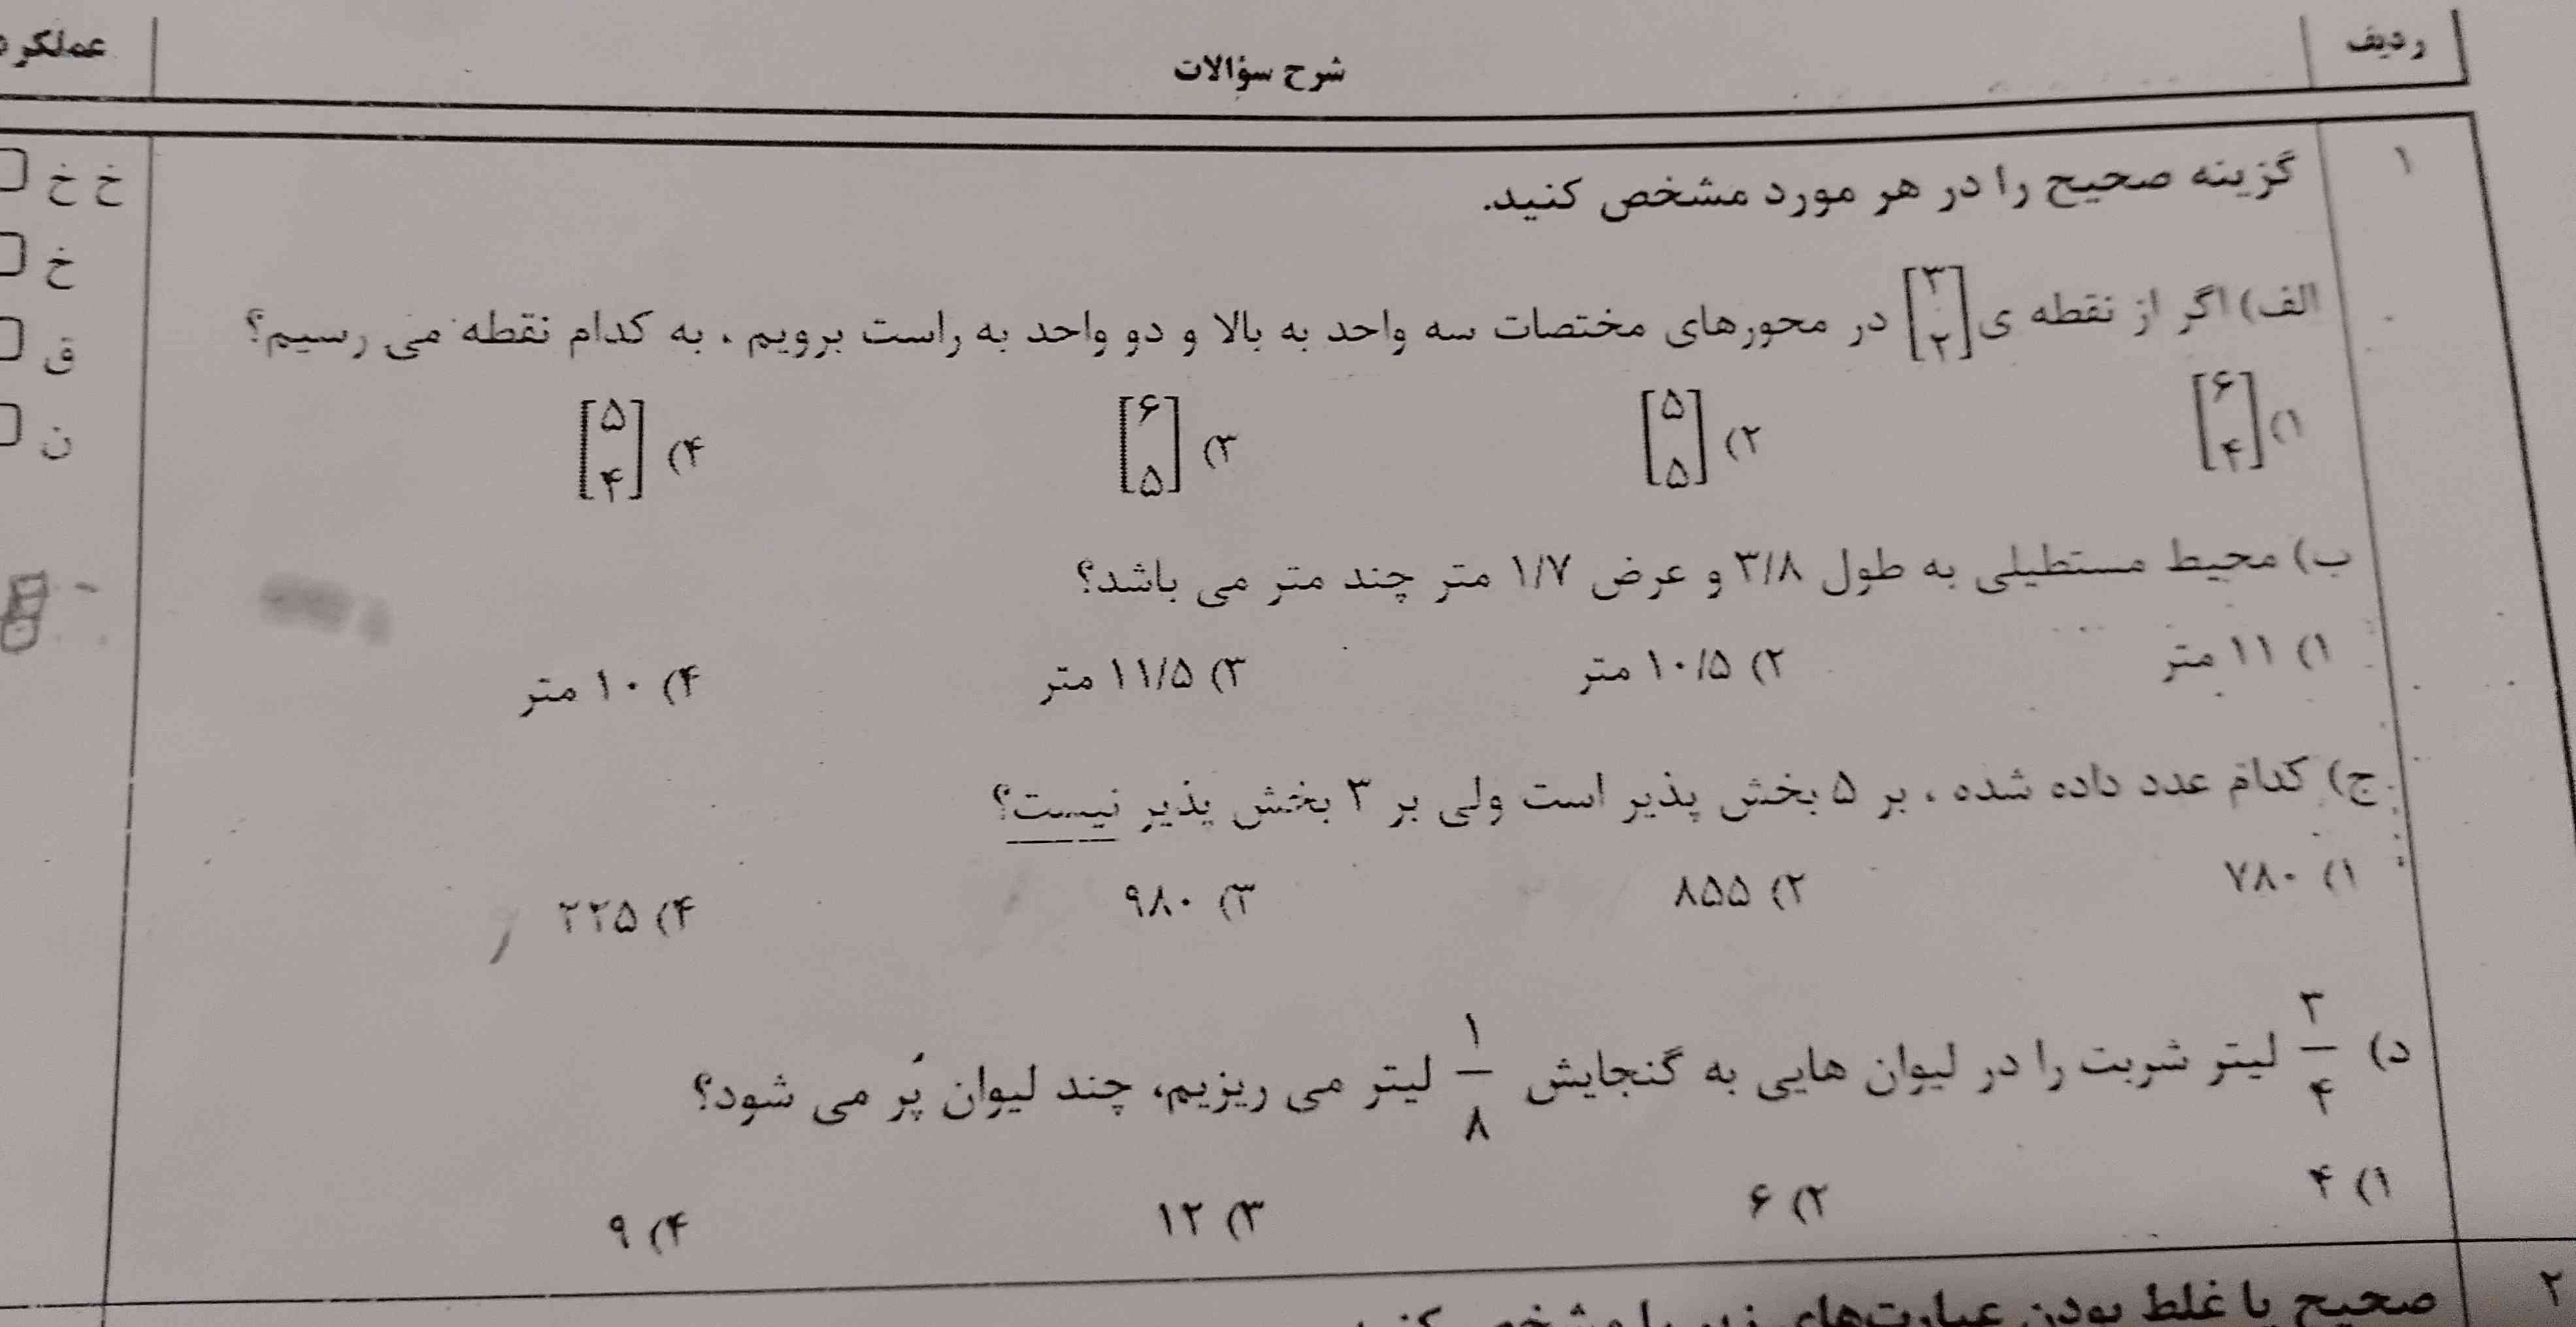 ردیف شرح سؤالات عملکرد
۱ گزینه صحیح را در هر مورد مشخص کنید.
خ خ
خ
ق
ن
الف) اگر از نقطه ی [۳ ۲] در محورهای مختصات سه واحد به بالا و دو واحد به راست برویم ، به کدام نقطه می رسیم؟
۱) [۶ ۴] ۲) [۵ ۵] ۳) [۶ ۵] ۴) [۵ ۴]
ب) محیط مستطیلی به طول ۳/۸ و عرض ۱/۷ متر چند متر می باشد؟
۱) ۱۱ متر ۲) ۱۰/۵ متر ۳) ۱۱/۵ متر ۴) ۱۰ متر
ج) کدام عدد داده شده ، بر ۵ بخش پذیر است ولی بر ۳ بخش پذیر نیست؟
۱) ۷۸۰ ۲) ۸۵۵ ۳) ۹۸۰ ۴) ۲۲۵
د) ۳/۴ لیتر شربت را در لیوان هایی به گنجایش ۱/۸ لیتر می ریزیم، چند لیوان پُر می شود؟
۱) ۴ ۲) ۶ ۳) ۱۲ ۴) ۹
۲ صحیح یا غلط بودن عبارت‌های زیر را مشخص